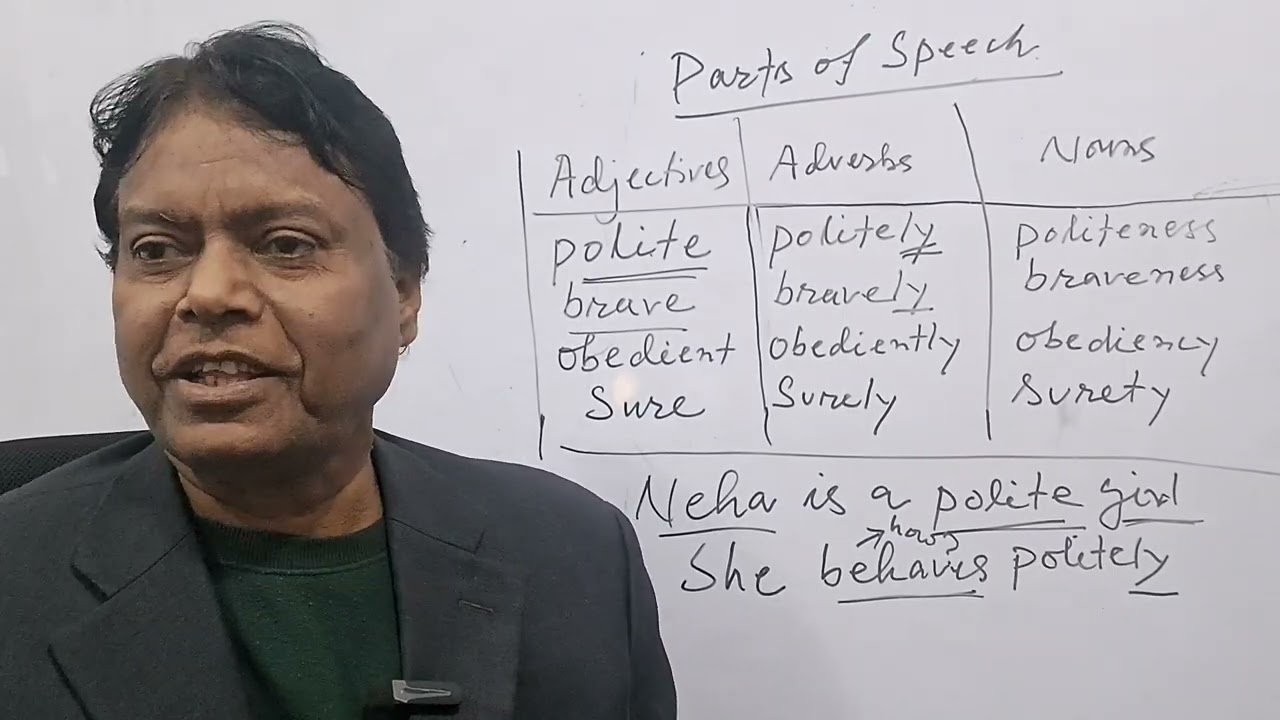 Parts of Speech
Adjectives Adverbs Nouns
polite politely politeness
brave bravely braveness
obedient obediently obediency
Sure Surely surety
Neha is a polite girl
how
She behaves politely